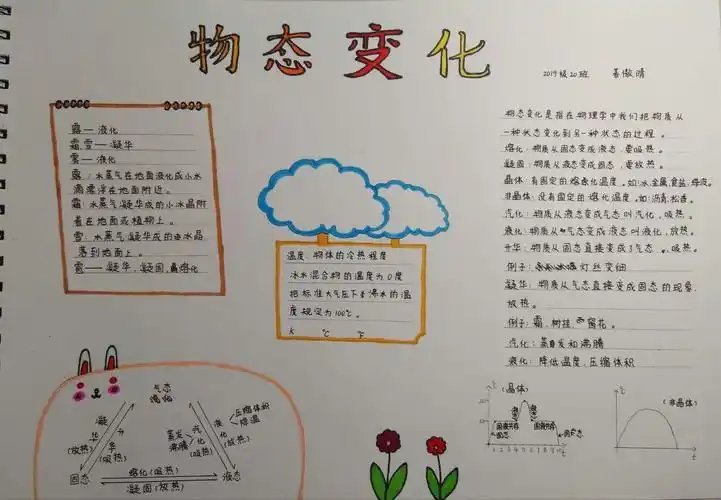 物态变化
2019级20班 姜傲晴
露——液化
霜,雪——凝华
雾——液化
露:水蒸气在地面液化成小水
滴漂浮在地面附近。
霜:水蒸气凝华成的小冰晶附
着在地面或植物上。
雪:水蒸气凝华成的冰晶
落到地面上。
雹——凝华,凝固,熔化
温度:物体的冷热程度
冰水混合物的温度为0度
把标准大气压下沸水的温
度规定为100℃。
K ℃ ℉
物态变化是指在物理学中我们把物质从
一种状态变化到另一种状态的过程。
熔化:物质从固态变成液态,要吸热。
凝固:物质从液态变成固态,要放热。
晶体:有固定的熔化温度。如:冰,金属,食盐,海波。
非晶体:没有固定的熔化温度。如:沥青,松香。
汽化:物质从液态变成气态叫汽化,吸热。
液化:物质从气态变成液态叫液化,放热。
升华:物质从固态直接变成气态。吸热。
例子:灯丝变细
凝华:物质从气态直接变成固态的现象,
放热。
例子:霜,树挂,窗花。
汽化:蒸发和沸腾
液化:降低温度,压缩体积
气态
凝华
(放热)
升华
(吸热)
蒸发
沸腾
汽化
(吸热)
液化
(放热)
压缩体积
降温
固态
熔化(吸热)
凝固(放热)
液态
℃
(晶体)
固液共存
固液共存
固态
固态
1 2 3 4 5 6 7 8 9 10 t
℃
(非晶体)
t